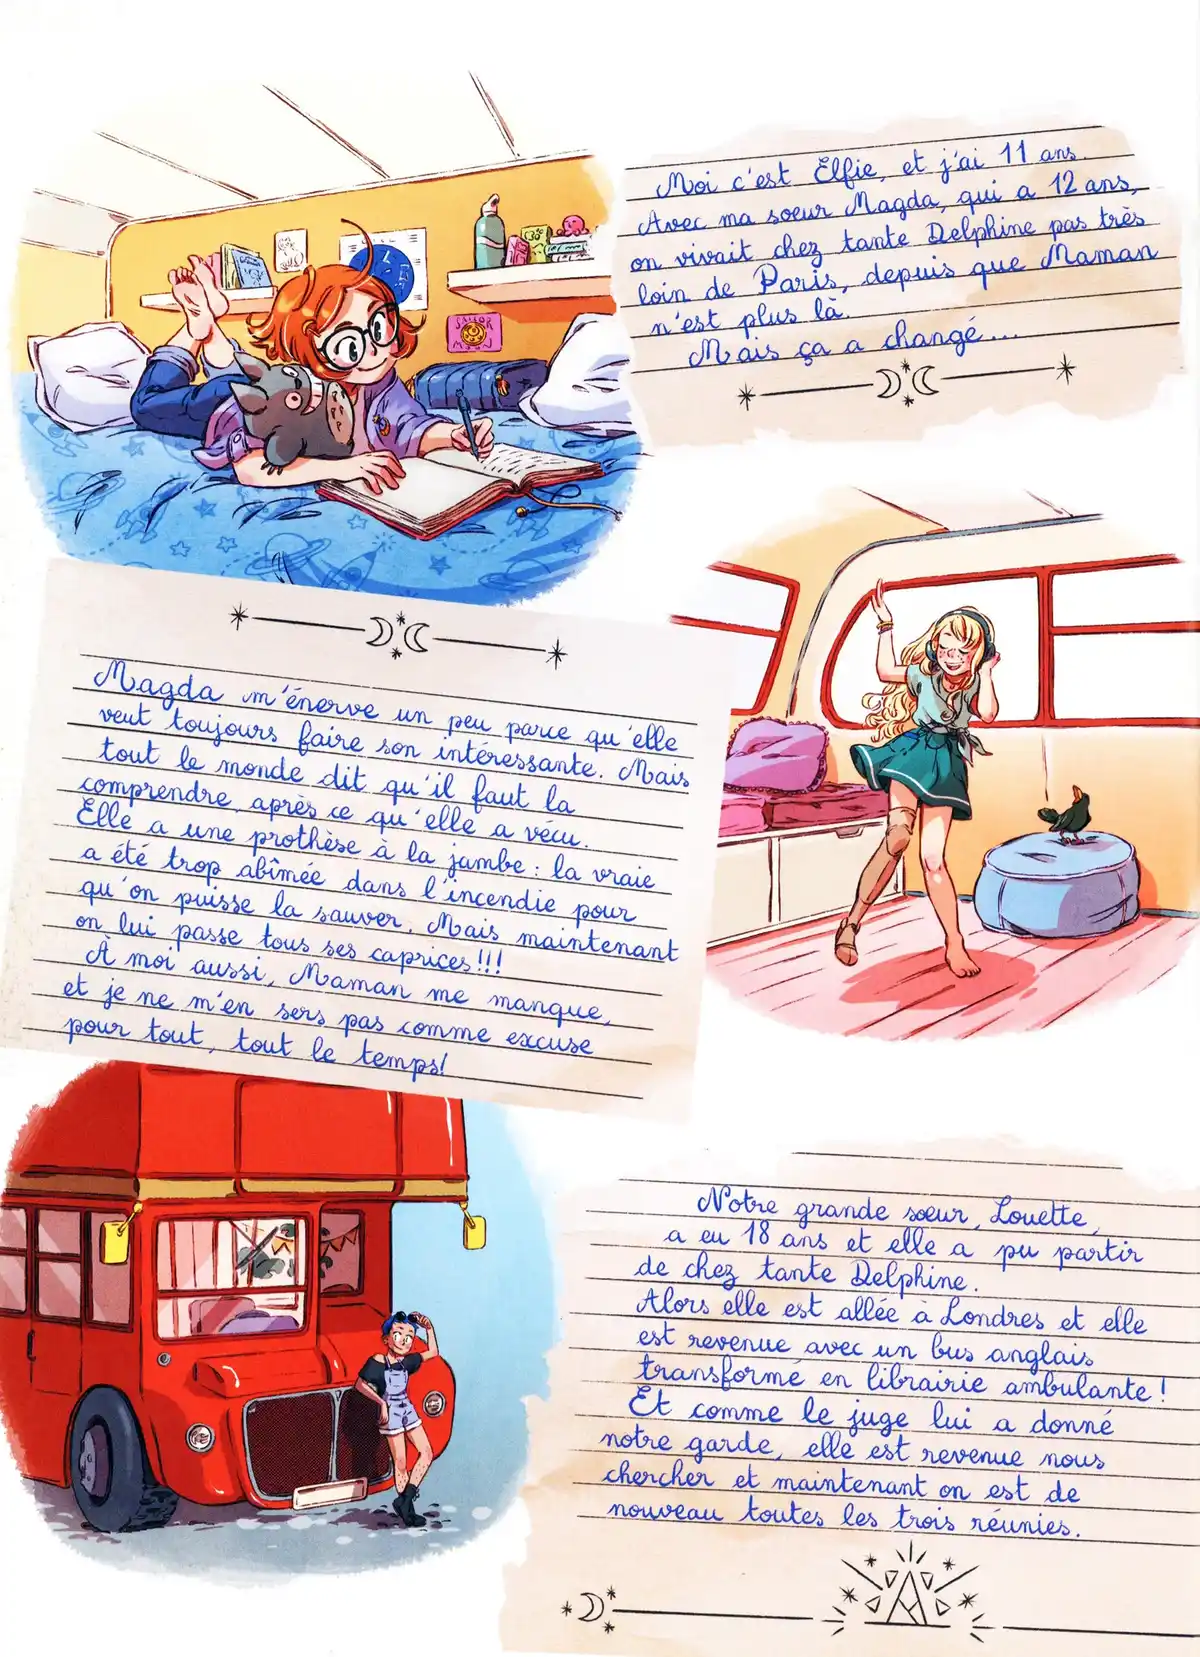 Moi c'est Elfie, et j'ai 11 ans.
Avec ma soeur Magda, qui a 12 ans,
on vivait chez tante Delphine pas très
loin de Paris, depuis que Maman
n'est plus là.
Mais ça a changé...
SAILOR
MOON
Magda m'énerve un peu parce qu'elle
veut toujours faire son intéressante. Mais
tout le monde dit qu'il faut la
comprendre, après ce qu'elle a vécu.
Elle a une prothèse à la jambe : la vraie
a été trop abîmée dans l'incendie pour
qu'on puisse la sauver. Mais maintenant
on lui passe tous ses caprices!!!
À moi aussi, Maman me manque,
et je ne m'en sers pas comme excuse
pour tout, tout le temps!
Notre grande sœur, Louette,
a eu 18 ans et elle a pu partir
de chez tante Delphine.
Alors elle est allée à Londres et elle
est revenue avec un bus anglais
transformé en librairie ambulante !
Et comme le juge lui a donné
notre garde, elle est revenue nous
chercher et maintenant on est de
nouveau toutes les trois réunies.